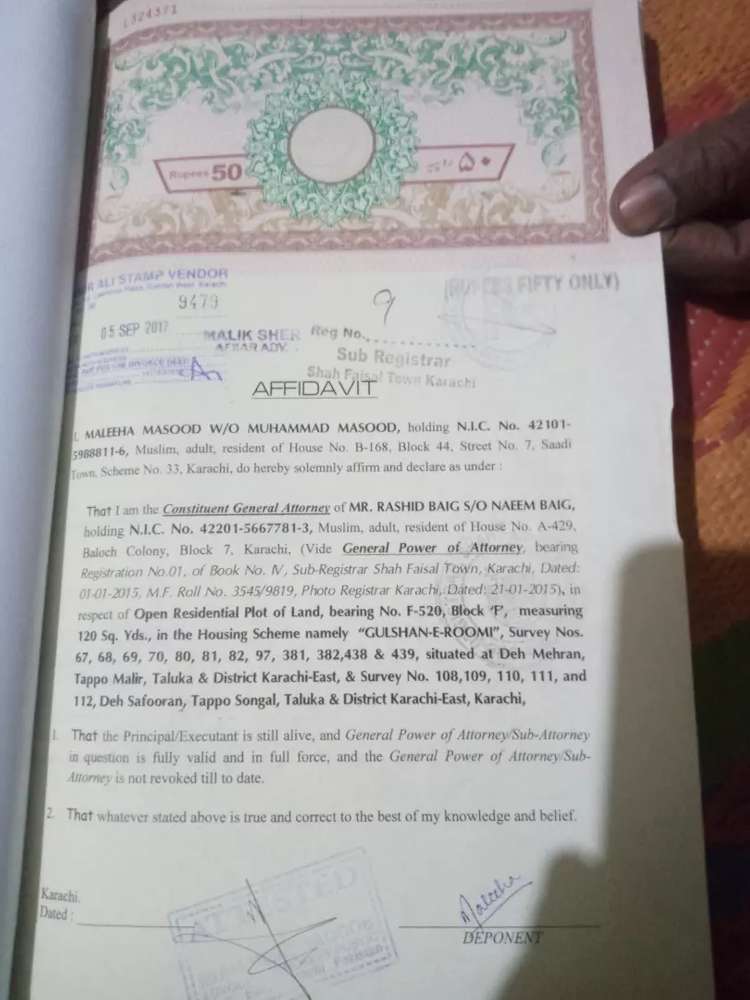 L324371
Rupees 50
۵۰
ALI STAMP VENDOR
9479
05 SEP 2017
MALIK SHER
ADV.
9
Reg No.
(RUPEES FIFTY ONLY)
Sub Registrar
Shah Faisal Town Karachi
AFFIDAVIT
I, MALEEHA MASOOD W/O MUHAMMAD MASOOD, holding N.I.C. No. 42101-
5988811-6, Muslim, adult, resident of House No. B-168, Block 44, Street No. 7, Saadi
Town, Scheme No. 33, Karachi, do hereby solemnly affirm and declare as under :
That I am the Constituent General Attorney of MR. RASHID BAIG S/O NAEEM BAIG,
holding N.I.C. No. 42201-5667781-3, Muslim, adult, resident of House No. A-429,
Baloch Colony, Block 7, Karachi, (Vide General Power of Attorney, bearing
Registration No.01, of Book No. IV, Sub-Registrar Shah Faisal Town, Karachi, Dated:
01-01-2015, M.F. Roll No. 3545/9819, Photo Registrar Karachi, Dated: 21-01-2015), in
respect of Open Residential Plot of Land, bearing No. F-520, Block 'F', measuring
120 Sq. Yds., in the Housing Scheme namely "GULSHAN-E-ROOMI", Survey Nos.
67, 68, 69, 70, 80, 81, 82, 97, 381, 382,438 & 439, situated at Deh Mehran,
Tappo Malir, Taluka & District Karachi-East, & Survey No. 108,109, 110, 111, and
112, Deh Safooran, Tappo Songal, Taluka & District Karachi-East, Karachi,
1. That the Principal/Executant is still alive, and General Power of Attorney/Sub-Attorney
in question is fully valid and in full force, and the General Power of Attorney/Sub-
Attorney is not revoked till to date.
2. That whatever stated above is true and correct to the best of my knowledge and belief.
Karachi.
Dated :
Maleeha
DEPONENT